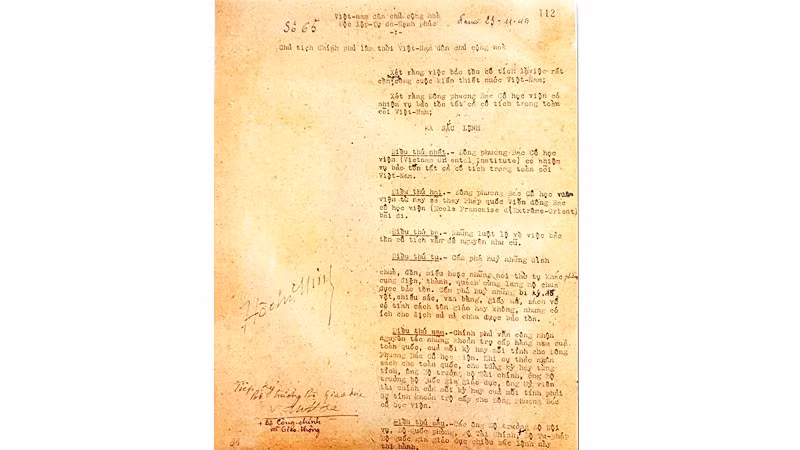 112
Việt-nam dân chủ cộng hoà
Số 65
Độc lập-Tự do-Hạnh phúc
Chủ tịch Chính phủ lâm thời Việt-Nam dân chủ cộng hoà
Xét rằng việc bảo tồn cổ tích là việc rất
cần trong cuộc kiến thiết nước Việt-Nam;
Xét rằng Đông phương Bác Cổ học viện có
nhiệm vụ bảo tồn tất cả cổ tích trong toàn
cõi Việt-Nam;
RA SẮC LỆNH
Điều thứ nhất.- Đông phương Bác Cổ học
viện (Vietnam Oriental Institute) có nhiệm
vụ bảo tồn tất cả cổ tích trong toàn cõi
Việt-Nam.
Điều thứ hai.- Đông phương Bác Cổ học
viện từ nay sẽ thay Pháp quốc Viễn đông Bác
cổ học viện (Ecole Francaise d'Extrême-Orient)
bãi đi.
Điều thứ ba.- Những luật lệ về việc bảo
tồn cổ tích vẫn để nguyên như cũ.
Điều thứ tư.- Cấm phá huỷ những đình
chùa, đền, miếu hoặc những nơi thờ tự khác,
cung điện, thành, quách cùng lăng mộ chưa
được bảo tồn. Cấm phá huỷ những bi ký, đồ
vật, chiếu sắc, văn bằng, giấy má, sách vở
có tính cách tôn giáo hay không, nhưng có
ích cho lịch sử mà chưa được bảo tồn.
Điều thứ năm.- Chính phủ vẫn công nhận
nguyên tắc những khoản trợ cấp hàng năm của
toàn quốc, của mỗi kỳ hay mỗi tỉnh cho Đông
Phương Bác Cổ học viện. Khi dự thảo ngân
sách cho toàn quốc, cho từng kỳ hay từng
tỉnh, ông Bộ trưởng Bộ Tài chính, ông Bộ
trưởng bộ Quốc gia giáo dục, ông Uỷ viên
tài chính của mỗi kỳ hay của mỗi tỉnh phải
dự tính khoản trợ cấp cho Đông Phương Bác
Cổ học viện.
Điều thứ sáu.- Các ông Bộ trưởng Bộ Nội
vụ, Bộ Quốc phòng, Bộ Tài Chính, Bộ Tư-pháp
Bộ Quốc gia giáo dục chiểu sắc lệnh này
thi hành.
Hồ Chí Minh
+ Bộ Công chính
và Giao thông